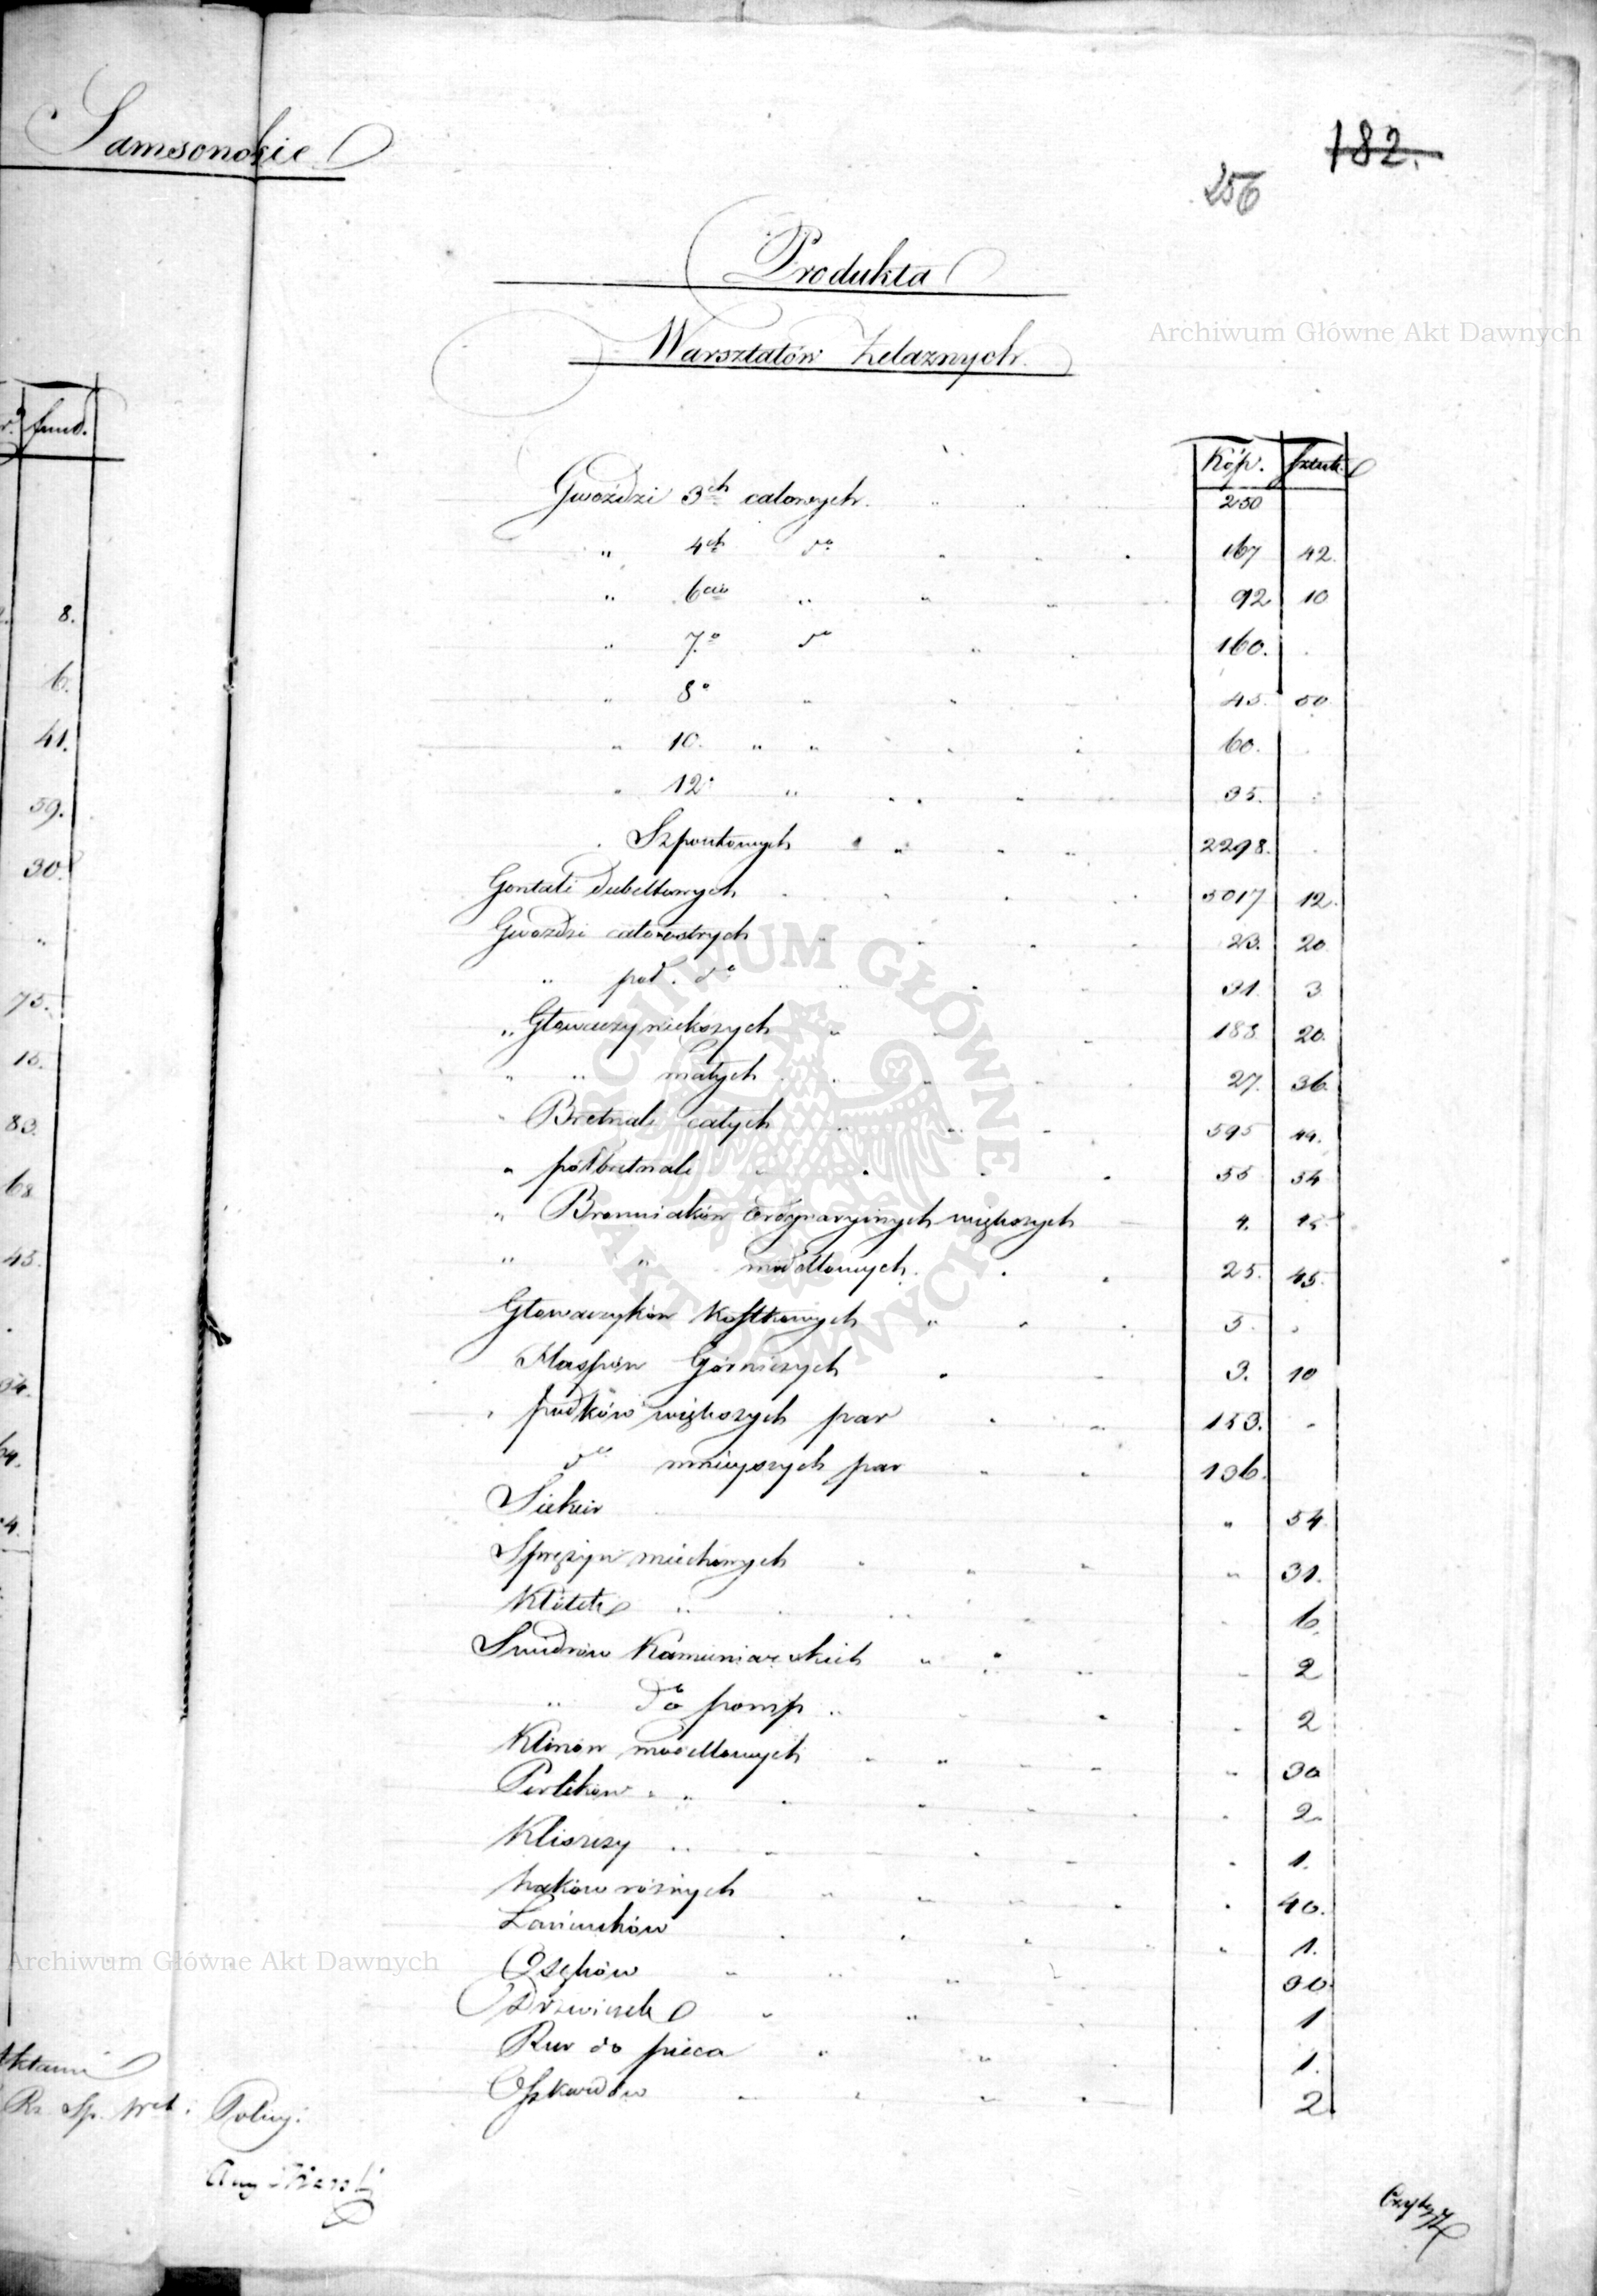 Samsonoskie
182.
256
Produkta
Warsztatów Żelaznych.
Archiwum Główne Akt Dawnych
funt.
Kóp. sztuk.
Gwoździ 3ch calowych. 250
" 4ch do 167 42.
" 6cio " 92 10
" 7.o do 160.
" 8o " 45. 50.
" 10. " " 60.
" 12. " 35.
Szpontowych 2298.
Gontali dubeltowych 5017 12.
Gwozdzi całoostrych 23. 20
" poł. do 31. 3
" Głowaczy wiekszych 183 20.
" " małych 27. 36.
" Bretnali całych 595 44.
" półbretnali 55 54
" Bronniaków ordynaryinych większych 4. 15
" " modellowych. 25. 45.
Głowaczyków Kostkowych 5.
Klaspów Górniczych 3. 10
" pudków większych par 153.
do mnieyszych par 136.
Siekier " 54.
Sprężyn miechowych " 31.
Klötek " 6.
Swidrów Kamieniarskich " 2
" do pomp 2
Klinów modellowych " 30
Perlików 2.
Kliszczy 1.
haków różnych 40.
Łańcuchów " 1.
Osęków 30.
Drzwiczek 1
Rur do pieca 1.
Oszkardów 2.
8.
6.
41.
59.
30.
"
75.
15.
83.
68
45.
34.
64.
4.
Archiwum Główne Akt Dawnych
ARCHIWUM GŁÓWNE AKT DAWNYCH